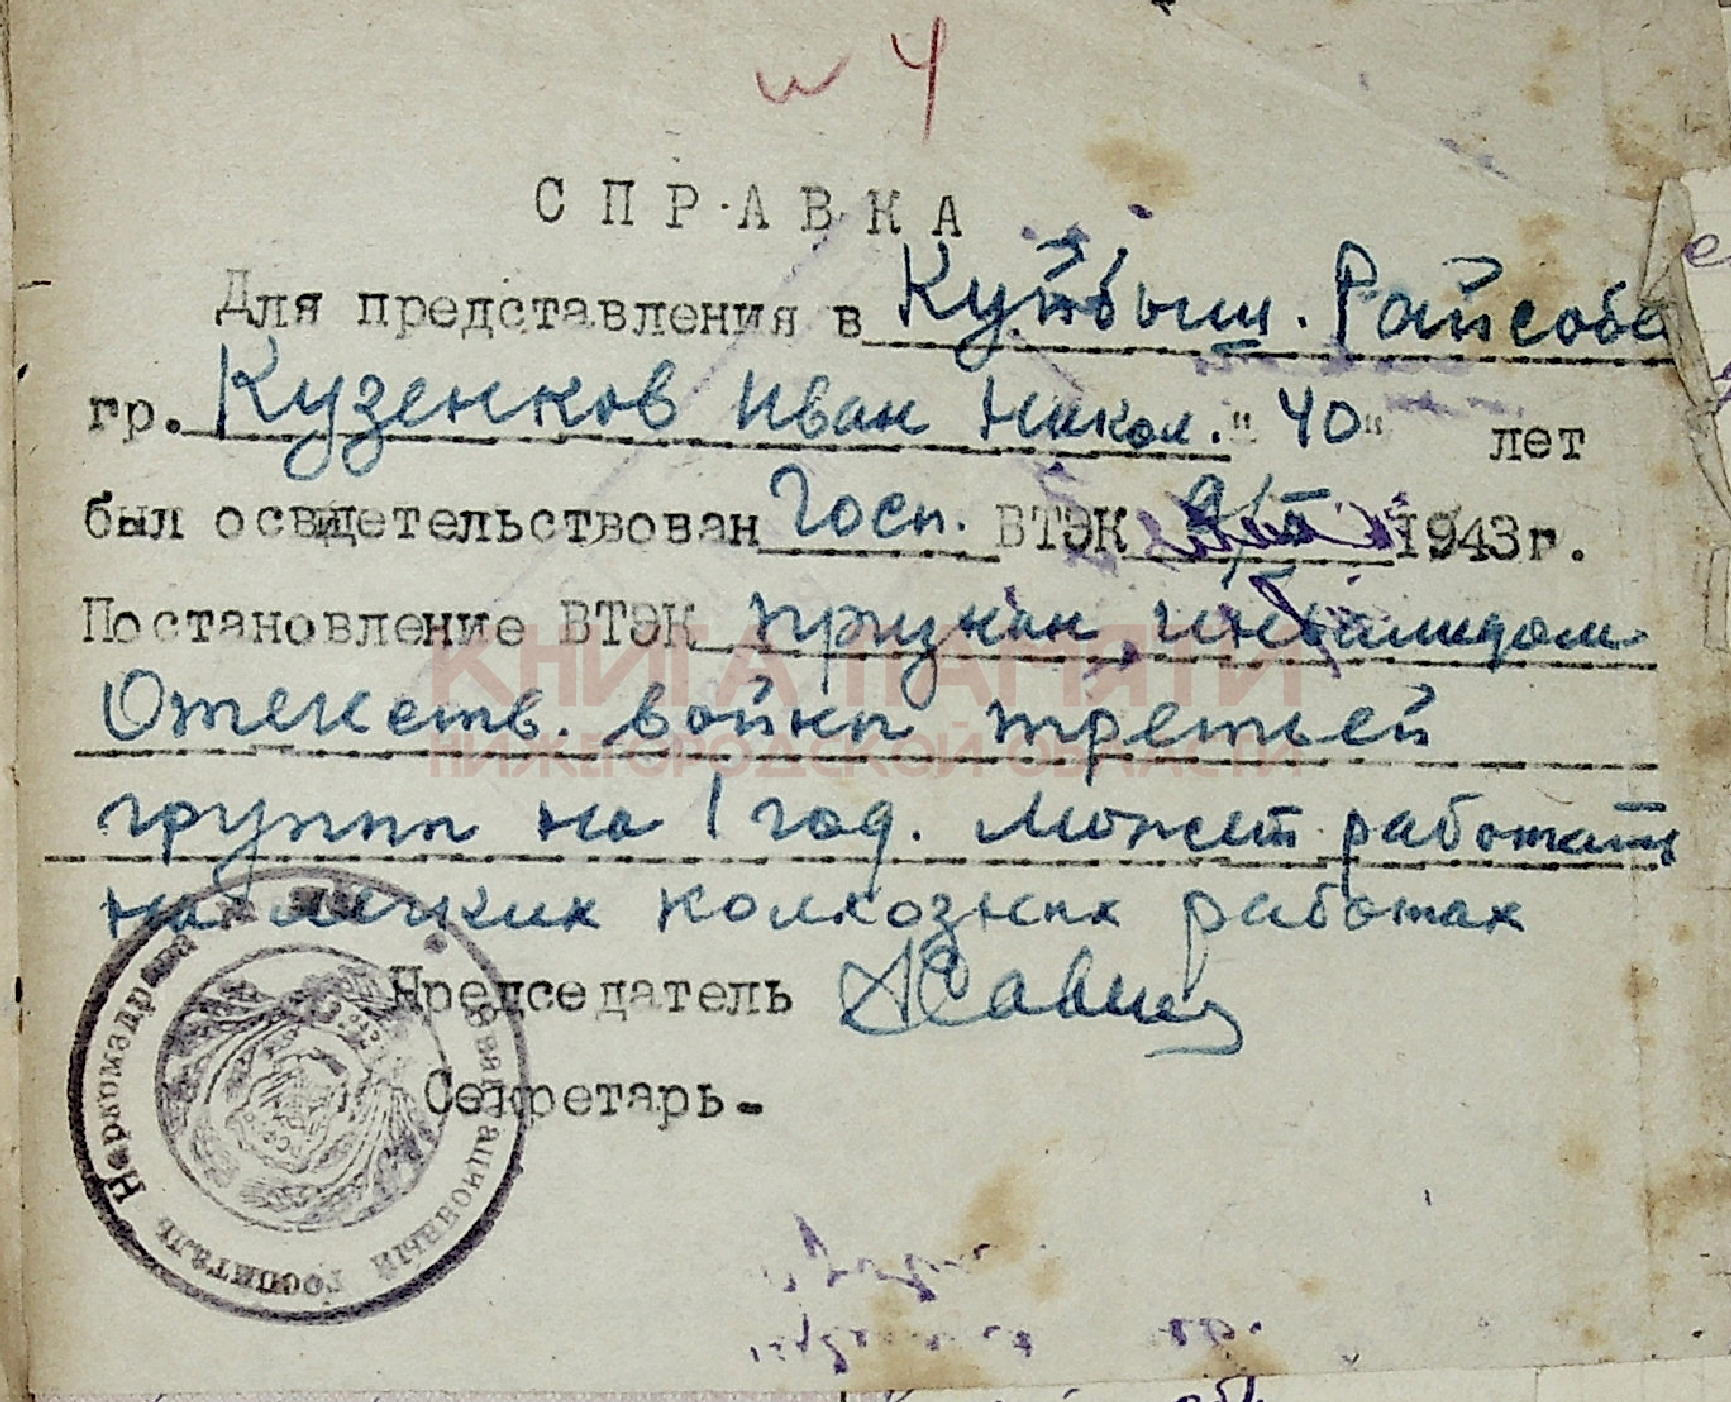 и 4
СПРАВКА
Для представления в Куйбыш. Райсобе
гр. Кузенков Иван Никол. "40" лет
был освидетельствован Госп. ВТЭК 1943г.
Постановление ВТЭК признан инвалидом
Отечеств. войны третьей
группы на 1 год. Может работать
на легких колхозных работах
Председатель
Секретарь-
Наркомздрава
Эвакуационный госпиталь
КНИГА ПАМЯТИ
НИЖЕГОРОДСКОЙ ОБЛАСТИ